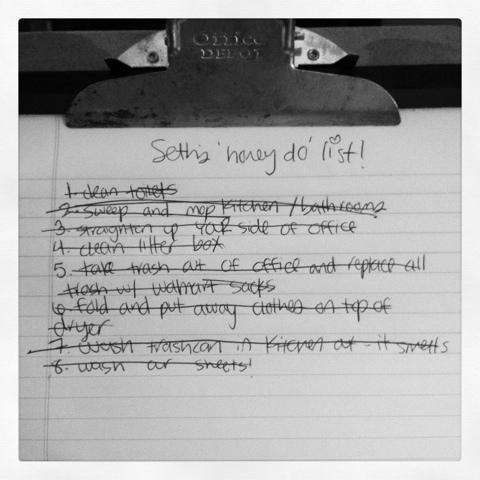 Office
DEPOT
Seth's 'honey do' list!
1. clean toilets
2. sweep and mop kitchen / bathrooms
3. straighten up YOUR side of office
4. clean litter box
5. take trash out of office and replace all
trash w/ walmart sacks
6. fold and put away clothes on top of
dryer
7. wash trashcan in kitchen out - it smells
8. wash our sheets!